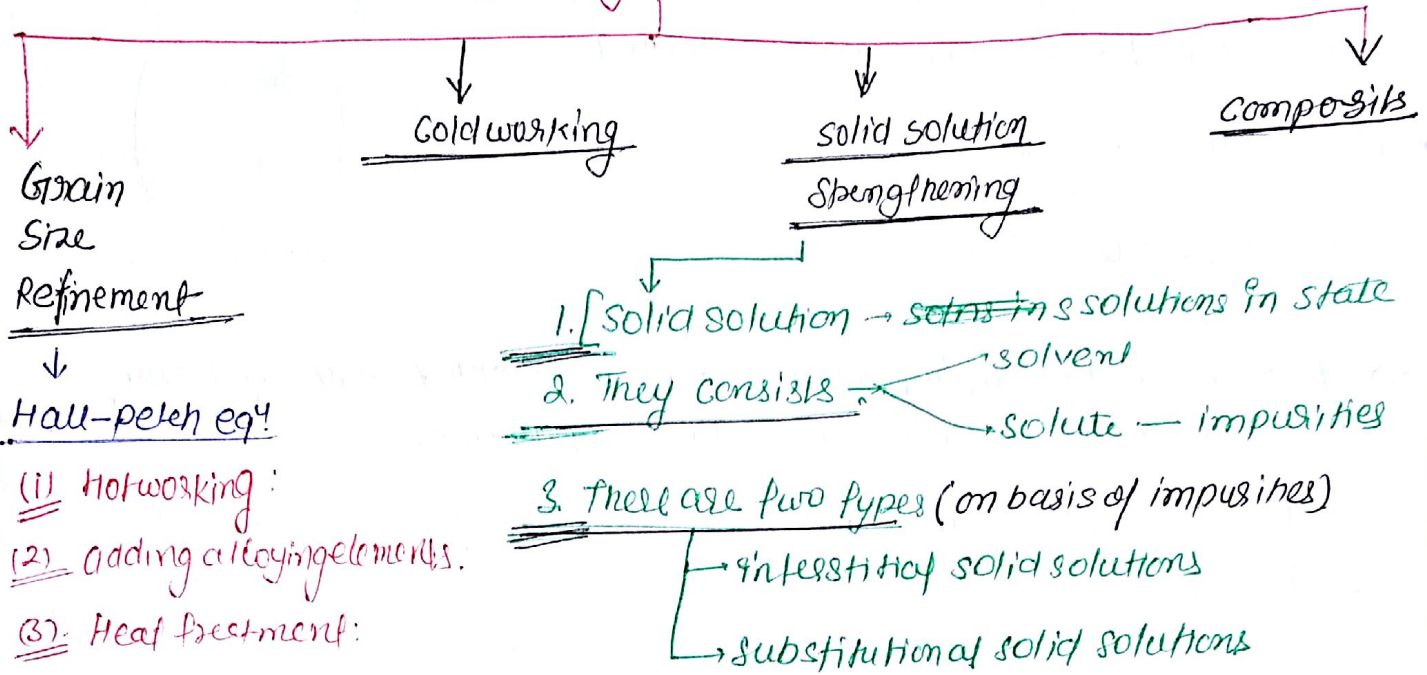 Grain
Size
Refinement
Hall-petch eqⁿ.
(1) Hotworking:
(2) adding alloyingelements.
(3). Heat treatment:
Coldworking
solid solution
Strengthening
1. Solid solution → solutions in state
2. They consists →
solvent
solute — impurities
3. There are two types (on basis of impurities)
→ interstitial solid solutions
→ substitutional solid solutions
Composits